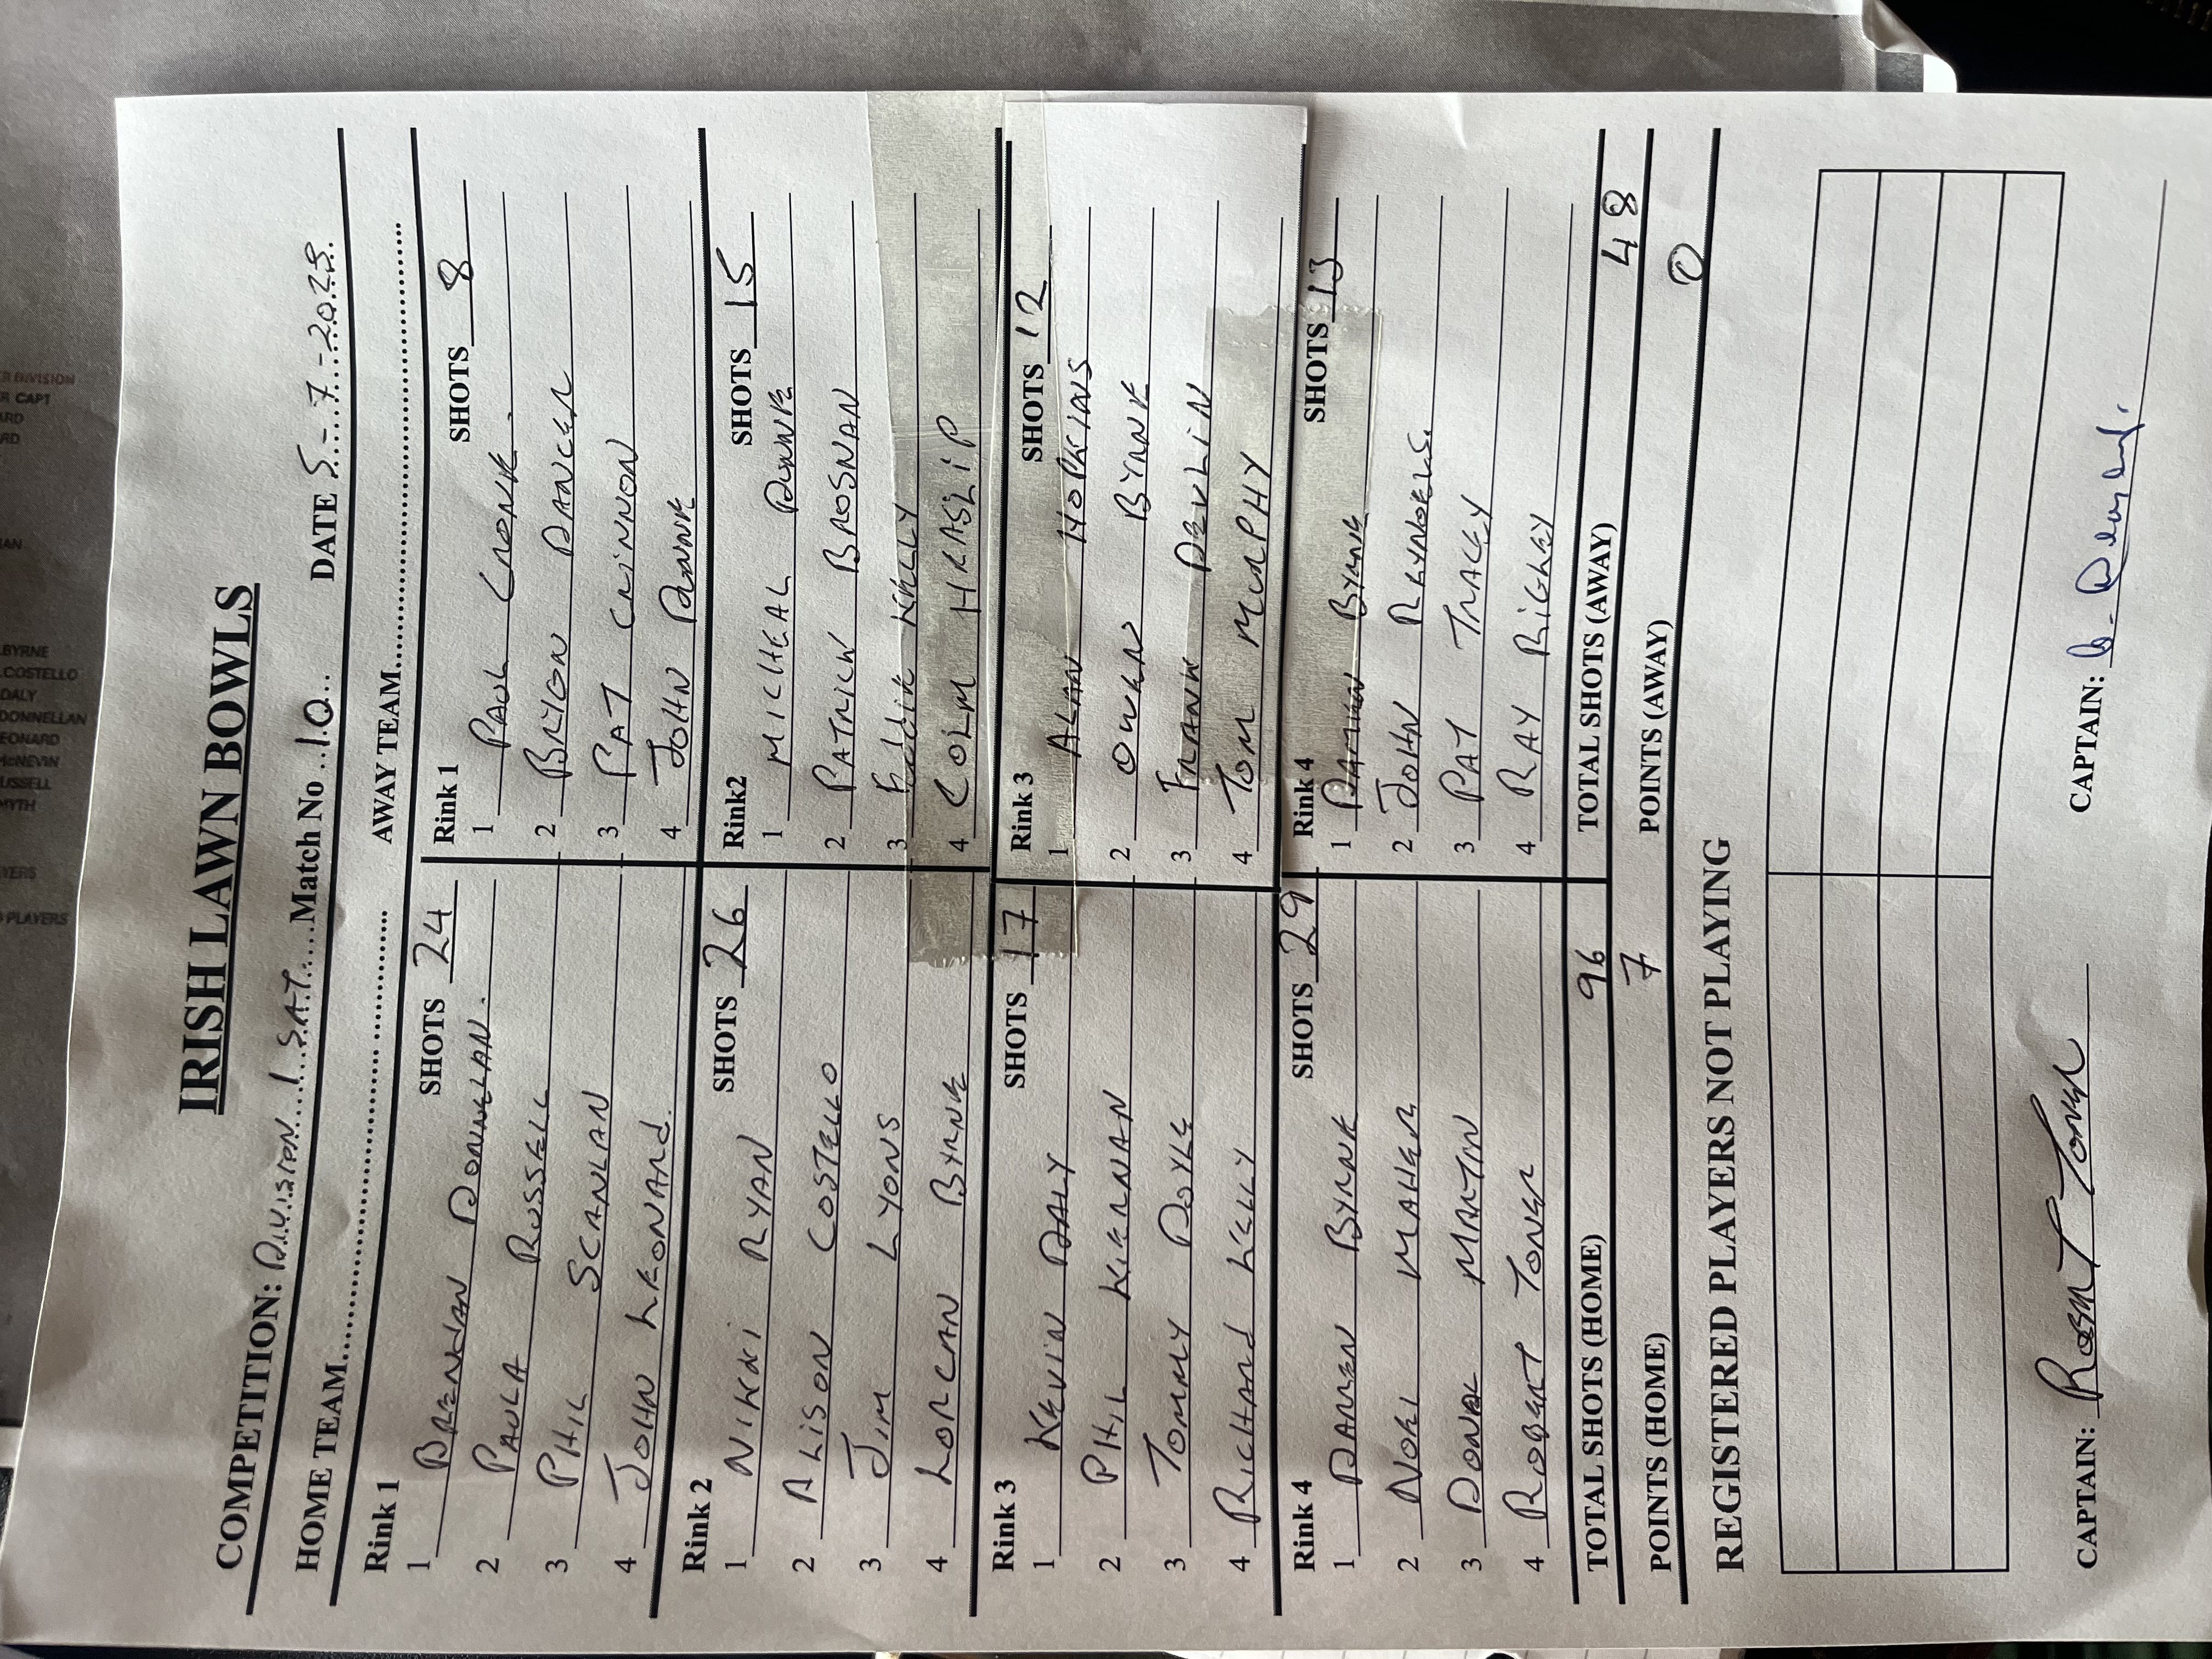 IRISH LAWN BOWLS
COMPETITION: DIVISION 1 SAT Match No 10 DATE 5-7-2025
HOME TEAM AWAY TEAM
Rink 1 SHOTS 24
1 BRENDAN DONNELLAN.
2 PAULA RUSSELL
3 PHIL SCANLAN
4 JOHN LEONARD.
Rink 1 SHOTS 8
1 PAUL CRONK.
2 BRIAN DANCER
3 PAT CRINNON
4 JOHN DUNNE
Rink 2 SHOTS 26
1 NIKKI RYAN
2 ALISON COSTELLO
3 JIM LYONS
4 LORCAN BYRNE
Rink2 SHOTS 15
1 MICHEAL DUNNE
2 PATRICK BROSNAN
3 EDDIE KELLY
4 COLM HEASLIP
Rink 3 SHOTS 17
1 KEVIN DALY
2 PHIL KIERNAN
3 TOMMY DOYLE
4 RICHARD KELLY
Rink 3 SHOTS 12
1 ALAN HOPKINS
2 OWEN BYRNE
3 FRANK DEVLIN
4 TOM MURPHY
Rink 4 SHOTS 29
1 DARREN BYRNE
2 NOEL MAHER
3 DONAL MARTIN
4 ROBERT TONER
Rink 4 SHOTS 13
1 DAMIEN BYRNE
2 JOHN REYNOLDS.
3 PAT TRACEY
4 RAY RIGNEY
TOTAL SHOTS (HOME) 96 TOTAL SHOTS (AWAY) 48
POINTS (HOME) 7 POINTS (AWAY) 0
REGISTERED PLAYERS NOT PLAYING
CAPTAIN: Robert Toner CAPTAIN:
R DIVISION
R CAPT
ARD
RD
AN
BYRNE
COSTELLO
DALY
DONNELLAN
EONARD
McNEVIN
USSELL
MYTH
YERS
PLAYERS